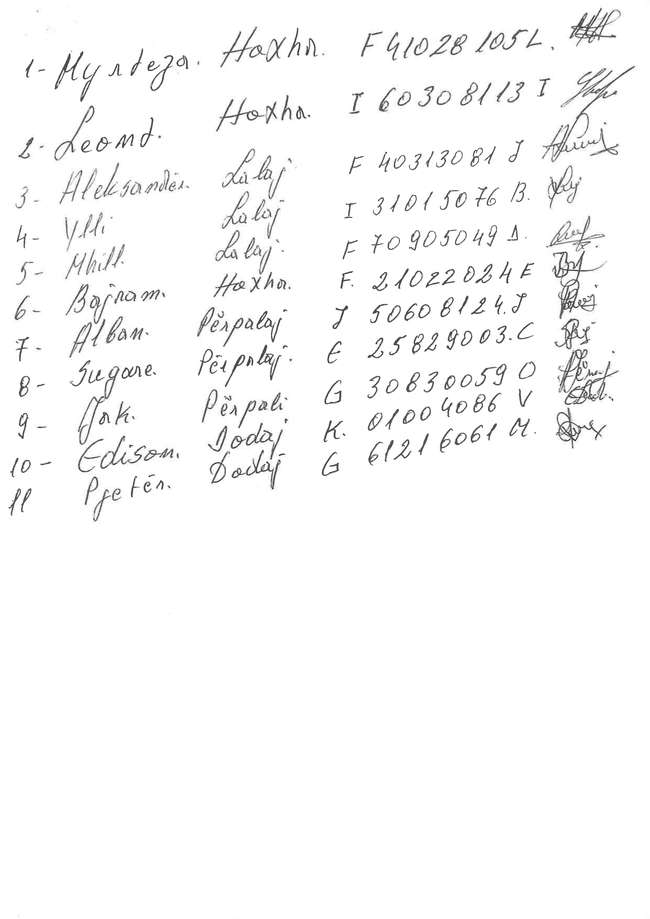 1- Myrteza. Hoxha. F 41028105 L.
2- Leond. Hoxha. I 60308113 I
3- Aleksandër. Lalaj F 40313081 J
4- Ylli Lalaj I 31015076 B.
5- Mhill. Lalaj. F 70905049 D.
6- Bajram. Hoxha. F. 21022024 E
7- Alban. Përpalaj J 50608124. J
8- Sugare. Përpalaj. E 25829003. C
9- Përpali G 30830059 O
10- Edison. Dodaj K. 01004086 V
11 Pjetër. Dodaj G 61216061 M.